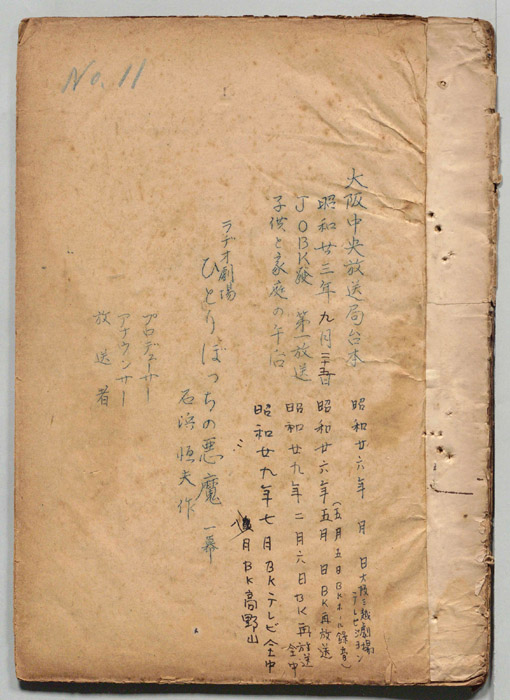 No. 11
大阪中央放送局台本
昭和廿三年九月二十五日
JOBK發 第一放送
子供と家庭の午后
ラヂオ劇場
ひとりぼっちの悪魔 一幕
石浜恒夫作
プロデューサー
アナウンサー
放送者
昭和廿六年 月 日 大阪三越劇場
テレビジョン
(五月五日BKホール録音)
昭和廿六年五月 日BK再放送
昭和廿九年二月六日BK再放送
全中
昭和廿九年七月BKテレビ全中
月BK高野山